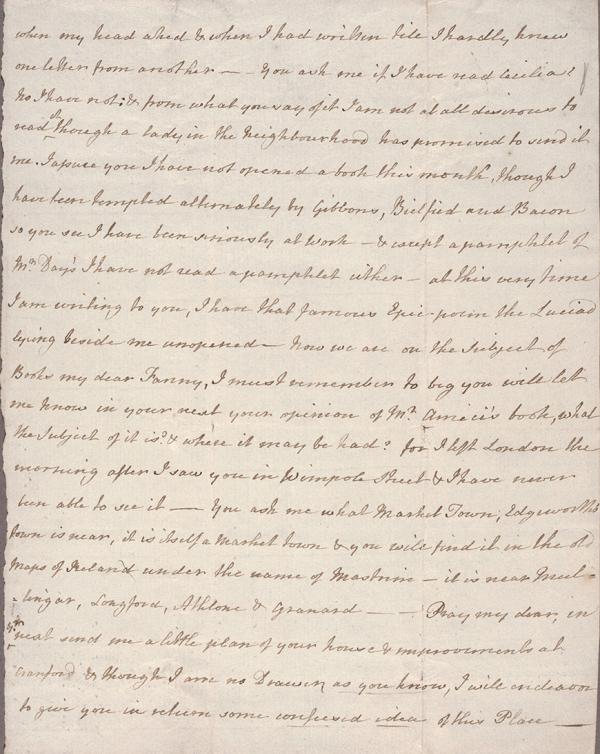 when my head ached & when I had written till I hardly knew
one letter from another — — You ask me if I have read Cecilia?
No I have not: & from what you say of it I am not at all desirous to
read it though a lady in the Neighbourhood has promised to send it
me. I assure you I have not opened a book this month, though I
have been tempted alternately by Gibbons, Bielfied and Bacon
so you see I have been seriously at work — & except a pamphlet of
Mr Day's I have not read a pamphlet either — at this very time
I am writing to you, I have that famous Epic-poem the Luciad
lying beside me unopened — Now we are on the Subject of
Books my dear Fanny, I must remember to beg you will let
me know in your next your opinion of Mr. book, what
the Subject of it is? & where it may be had? for I left London the
morning after I saw you in Wimpole Street & I have never
been able to see it — You ask me what Market Town, Edgeworth's
town is near, it is itself a Market town & you will find it in the old
Maps of Ireland under the name of Mastrim — it is near Mul-
-lingar, Longford, Athlone & Granard — — Pray my dear, in
yr. next send me a little plan of your house & improvements at
Cranford & though I am no Drawer, as you know, I will endeavor
to give you in return some confused idea of this Place —